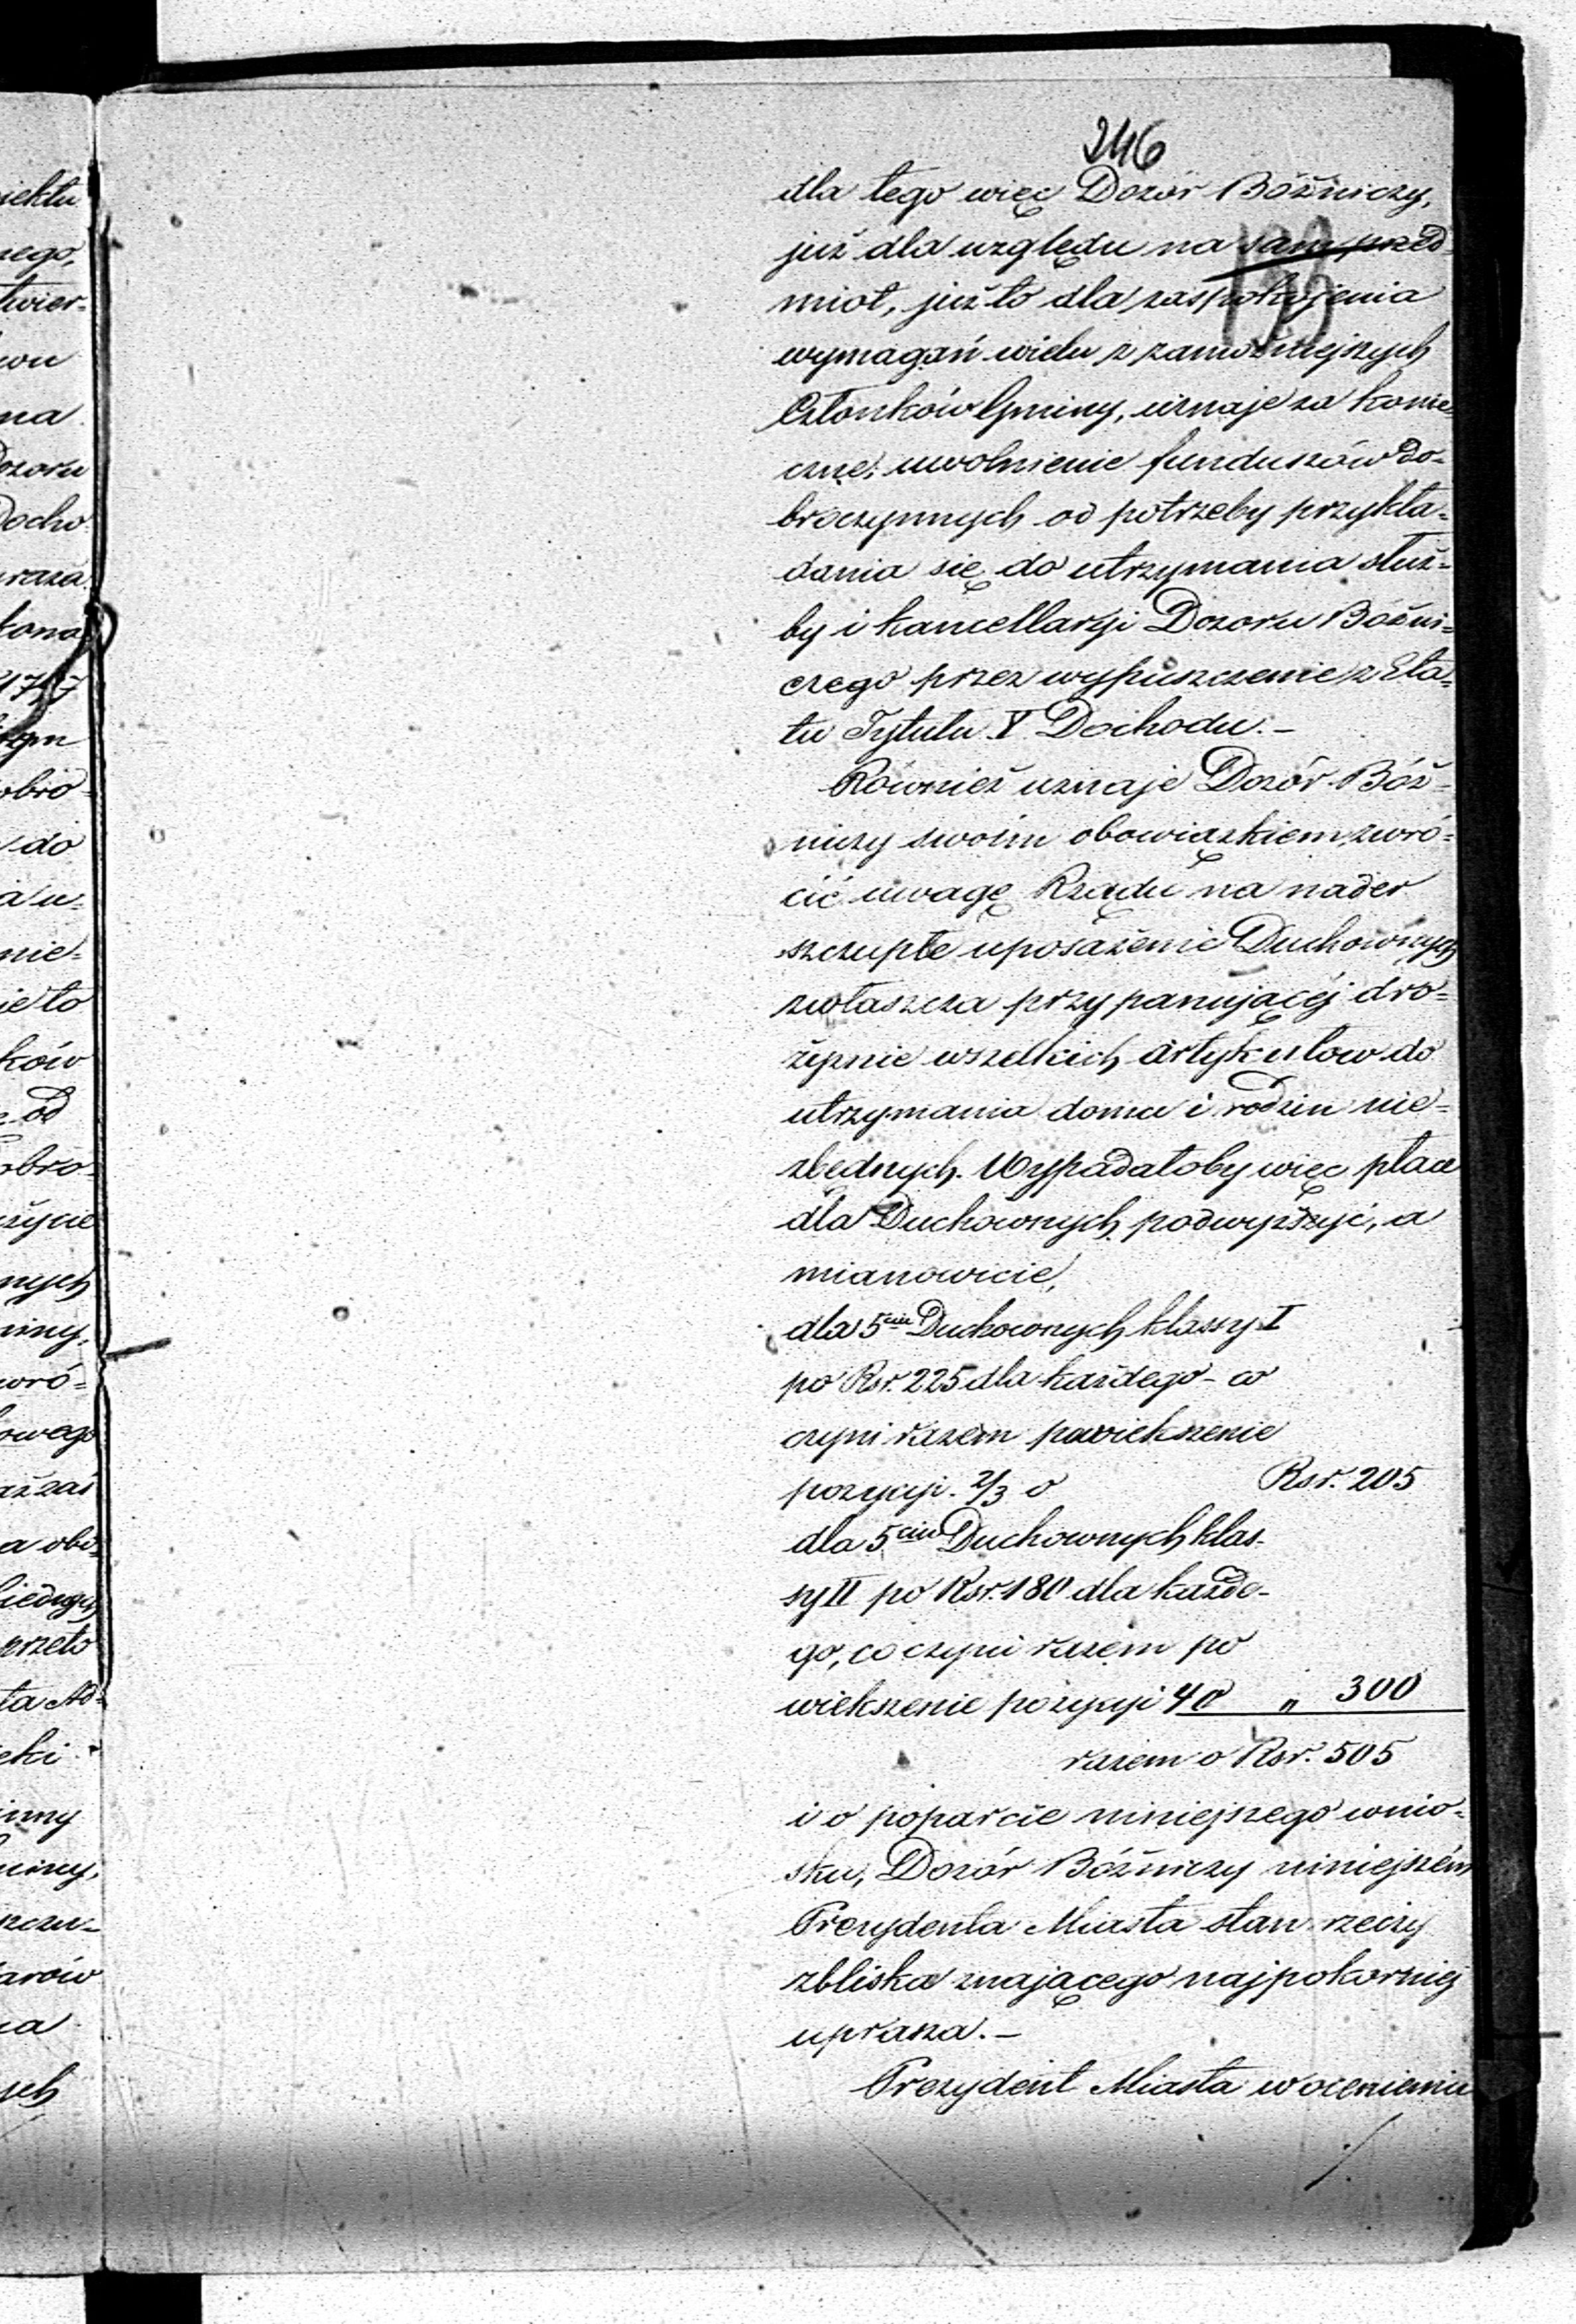 246
dla tego więc Dozór Bóżniczy,
już dla względu na sam przed-
miot, już to dla zaspokojenia
wymagań wielu z zamożniejszych
Członków Gminy, uznaje za konie-
czne, uwolnienie funduszów do-
broczynnych od potrzeby przykła-
dania się do utrzymania służ-
by i kancellaryi Dozoru Bóżni-
czego przez wypuszczenie z Eta-
tu Tytułu V Dochodu. -
Również uznaje Dozór Bóż-
niczy swoim obowiązkiem, zwró-
cić uwagę Rządu na nader
szczupłe uposażenie Duchownych
zwłaszcza przy panującéj dro-
żyznie wszelkich artykułow do
utrzymania domu i rodzin nie-
zbędnych. Wypadałoby więc płace
dla Duchownych podwyższyć, a
mianowicie,
dla 5ciu Duchownych klassy I
po Rsr. 225 dla każdego - co
czyni razem powiekszenie
pozycyi. 2/3 o Rsr. 205
dla 5ciu Duchownych klas-
sy II po Rsr. 180 dla każde-
go, co czyni razem po
wiekszenie pozycyi 4 o „ 300
razem o Rsr. 505
i o poparcie niniejszego wnio-
sku, Dozór Bóżniczy niniejszém
Prezydenta Miasta stan rzeczy
zbliska znającego najpokorniej
uprasza. -
Prezydent Miasta w ocenieniu
nego,
twier-
na
Dozoru
Docho
do
ków
od
nych
miny,
przeto